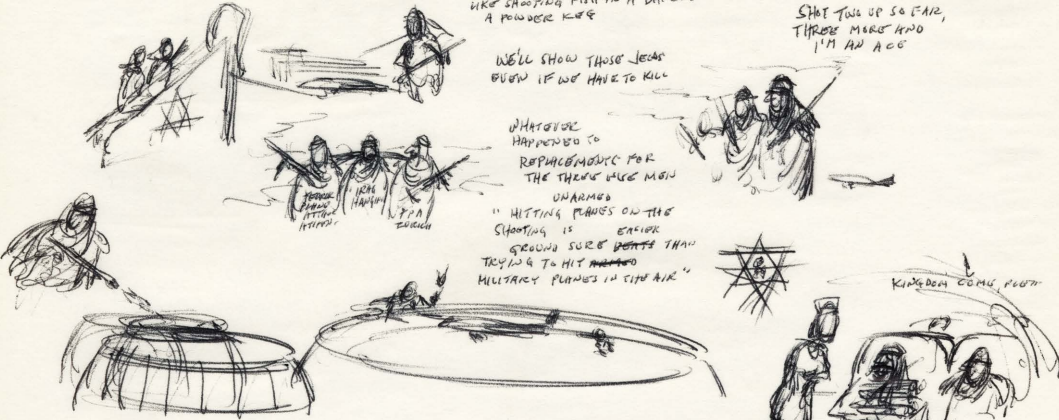 LIKE SHOOTING FISH IN A BARREL
A POWDER KEG
SHOT TWO UP SO FAR,
THREE MORE AND
I'M AN ACE
WE'LL SHOW THOSE JEWS
EVEN IF WE HAVE TO KILL
WHATEVER
HAPPENED TO
REPLACEMENTS FOR
THE THREE WISE MEN
IRAQ
HANGING
ZURICH
UNARMED
" HITTING PLANES ON THE
SHOOTING IS EASIER
GROUND SURE BEATS THAN
TRYING TO HIT ARMED
MILITARY PLANES IN THE AIR"
KINGDOM COME,